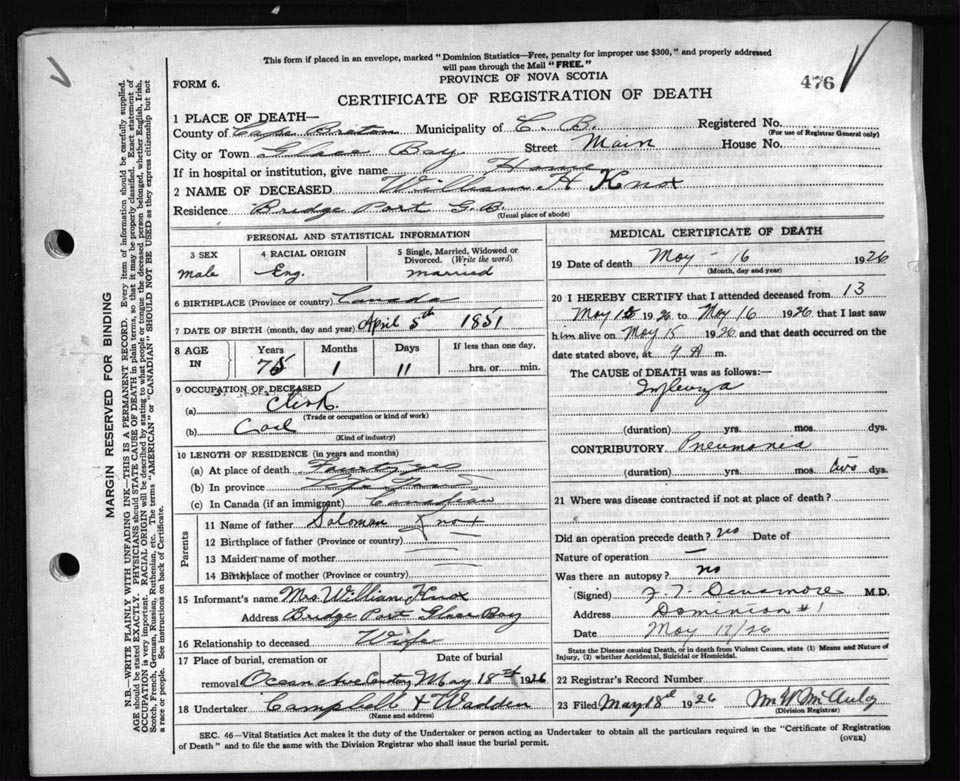 This form if placed in an envelope, marked "Dominion Statistics—Free, penalty for improper use $300," and properly addressed
will pass through the Mail "FREE."
PROVINCE OF NOVA SCOTIA
FORM 6.
476
CERTIFICATE OF REGISTRATION OF DEATH
MARGIN RESERVED FOR BINDING
N.B.—WRITE PLAINLY WITH UNFADING INK—THIS IS A PERMANENT RECORD. Every item of information should be carefully supplied.
AGE should be stated EXACTLY. PHYSICIANS should STATE CAUSE OF DEATH in plain terms, so that it may be properly classified. Exact statement of
OCCUPATION is very important. RACIAL ORIGIN will be described by stating to what people or tongue the deceased person belonged, whether English, Irish,
Scotch, French, German, Russian, Ruthenian, etc. The terms "AMERICAN" or "CANADIAN" SHOULD NOT BE USED as they express citizenship but not
a race or people. See instructions on back of Certificate.
1 PLACE OF DEATH—
County of Cape Breton Municipality of C. B. Registered No.
(For use of Registrar General only)
City or Town Glace Bay Street Main House No.
If in hospital or institution, give name Home
2 NAME OF DECEASED William H Knox
Residence Bridge Port G.B.
(Usual place of abode)
PERSONAL AND STATISTICAL INFORMATION
3 SEX
male
4 RACIAL ORIGIN
Eng.
5 Single, Married, Widowed or Divorced. (Write the word)
married
6 BIRTHPLACE (Province or country) Canada
7 DATE OF BIRTH (month, day and year) April 5th 1851
8 AGE IN
Years Months Days If less than one day,
75 1 11 hrs. or min.
9 OCCUPATION OF DECEASED
(a) Clerk
(Trade or occupation or kind of work)
(b) Coal
(Kind of industry)
10 LENGTH OF RESIDENCE (in years and months)
(a) At place of death
(b) In province
(c) In Canada (if an immigrant) Canadian
Parents
11 Name of father Soloman Knox
12 Birthplace of father (Province or country)
13 Maiden name of mother
14 Birthplace of mother (Province or country)
15 Informant's name Mrs William Knox
Address Bridge Port Glace Bay
16 Relationship to deceased Wife
17 Place of burial, cremation or Date of burial
removal Ocean Ave May 18 1926
18 Undertaker Campbell & Wadden
(Name and address)
MEDICAL CERTIFICATE OF DEATH
19 Date of death May - 16 1926
(Month, day and year)
20 I HEREBY CERTIFY that I attended deceased from 13
May 1926 to May 16 1926 that I last saw
him alive on May 15 1926 and that death occurred on
date stated above, at A m.
The CAUSE of DEATH was as follows:—
Influenza
(duration) yrs. mos. dys.
CONTRIBUTORY Pneumonia
(duration) yrs. mos. two dys.
21 Where was disease contracted if not at place of death?
Did an operation precede death? no Date of
Nature of operation —
Was there an autopsy? no
(Signed) M.D.
Address Dominion #1
Date May 17/26
State the Disease causing Death, or in death from Violent Causes, state (1) Means and Nature of
Injury, (2) whether Accidental, Suicidal or Homicidal.
22 Registrar's Record Number
23 Filed May 18 1926 Wm W McAuley
(Division Registrar)
SEC. 46—Vital Statistics Act makes it the duty of the Undertaker or person acting as Undertaker to obtain all the particulars required in the "Certificate of Registration
of Death" and to file the same with the Division Registrar who shall issue the burial permit.
(OVER)